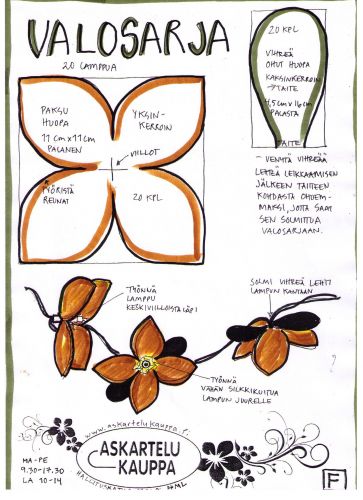 VALOSARJA
20 LAMPPUA
PAKSU
HUOPA
11 cm x 11 cm
PALANEN
YKSIN-
KERROIN
VIILLOT
PYÖRISTÄ
REUNAT
20 KPL
20 KPL
VIHREÄ
OHUT HUOPA
KAKSINKERROIN
→TAITE
4,5 cm x 16 cm
PALASTA
TAITE
- VENYTÄ VIHREÄÄ
LEHTEÄ LEIKKAAMISEN
JÄLKEEN TAITTEEN
KOHDASTA OHUEM-
MAKSI, JOTTA SAAT
SEN SOLMITTUA
VALOSARJAAN.
TYÖNNÄ
LAMPPU
KESKIVIILLOISTA LÄPI
SOLMI VIHREÄ LEHTI
LAMPUN KANTAAN
TYÖNNÄ
VÄHÄN SILKKIKUITUA
LAMPUN JUURELLE
www.askartelukauppa.fi
ASKARTELU
KAUPPA
HML
MA-PE
9.30-17.30
LA 10-14
F